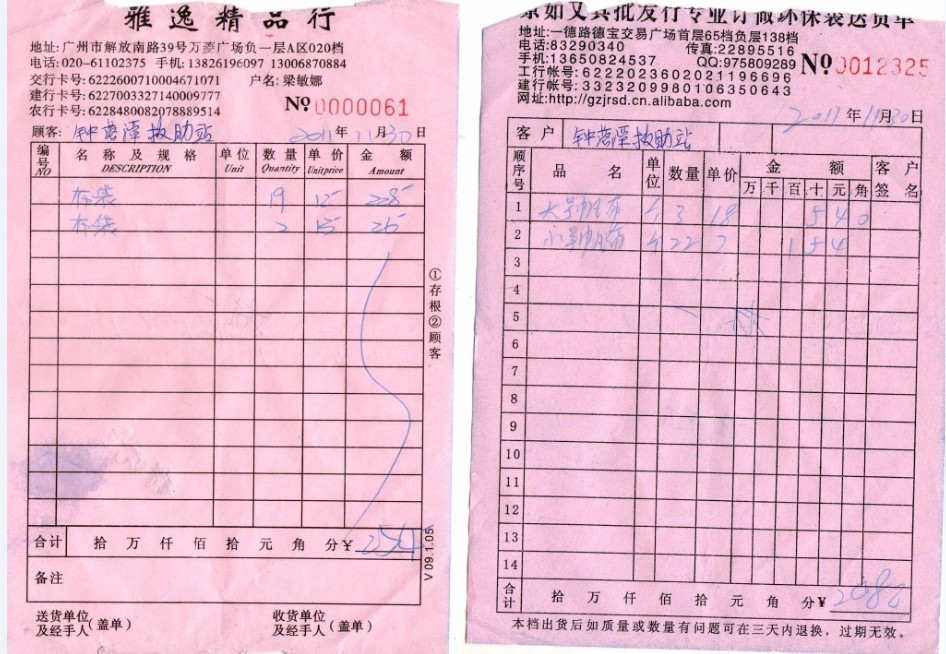 雅逸精品行
地址:广州市解放南路39号万菱广场负一层A区020档
电话:020-61102375 手机:13826196097 13006870884
交行卡号:6222600710004671071 户名:梁敏娜
建行卡号:6227003327140009777
农行卡号:6228480082078889514
№ 0000061
顾客: 钟 救助站 2011年11月30日
编号 NO 名称及规格 DESCRIPTION 单位 Unit 数量 Quantity 单价 Unitprice 金额 Amount
布袋 19 12
布袋 2
合计 拾 万 仟 佰 拾 元 角 分¥
备注
送货单位及经手人(盖单) 收货单位及经手人(盖单)
①存根②顾客
V 09.1.05
批发行专业订做环保袋送货单
地址:一德路德宝交易广场首层65档负层138档
电话:83290340 传真:22895516
手机:13650824537 QQ:975809289
工行帐号:6222023602021196696
建行帐号:3323209980106350643
网址:http://gzjrsd.cn.alibaba.com
№ 0012325
2011年11月30日
客户 钟 救助站
顺序号 品名 单位 数量 单价 金额 万 千 百 十 元 角 客户签名
1 大号帆布 3 18 5 4 0
2 小号帆布 22 7 1 5 4
3
4
5
6
7
8
9
10
11
12
13
14
合计 拾 万 仟 佰 拾 元 角 分¥
本档出货后如质量或数量有问题可在三天内退换，过期无效。